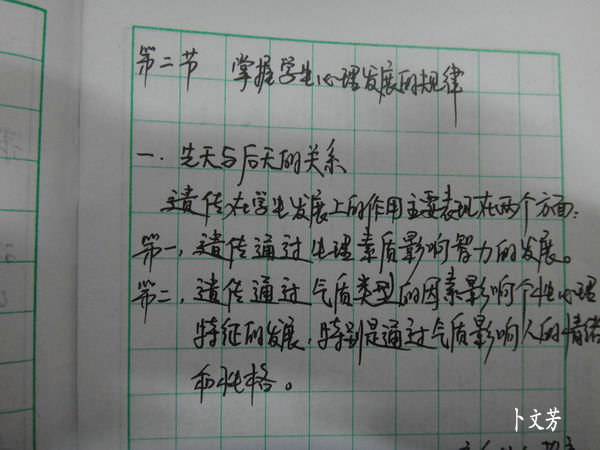 第二节 掌握学生心理发展的规律
一.先天与后天的关系
遗传在学生发展上的作用主要表现在两个方面:
第一,遗传通过生理素质影响智力的发展。
第二,遗传通过气质类型的因素影响个性心理
特征的发展,特别是通过气质影响人的情绪
和性格。
卜文芳